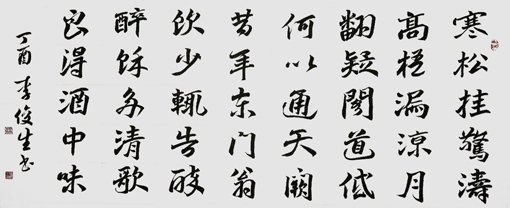 寒松挂惊涛
高梧漏凉月
翻疑阁道低
何以通天阙
昔年东门翁
饮少辄告酘
醉余多清歌
忘得酒中味
丁酉 李俊生书